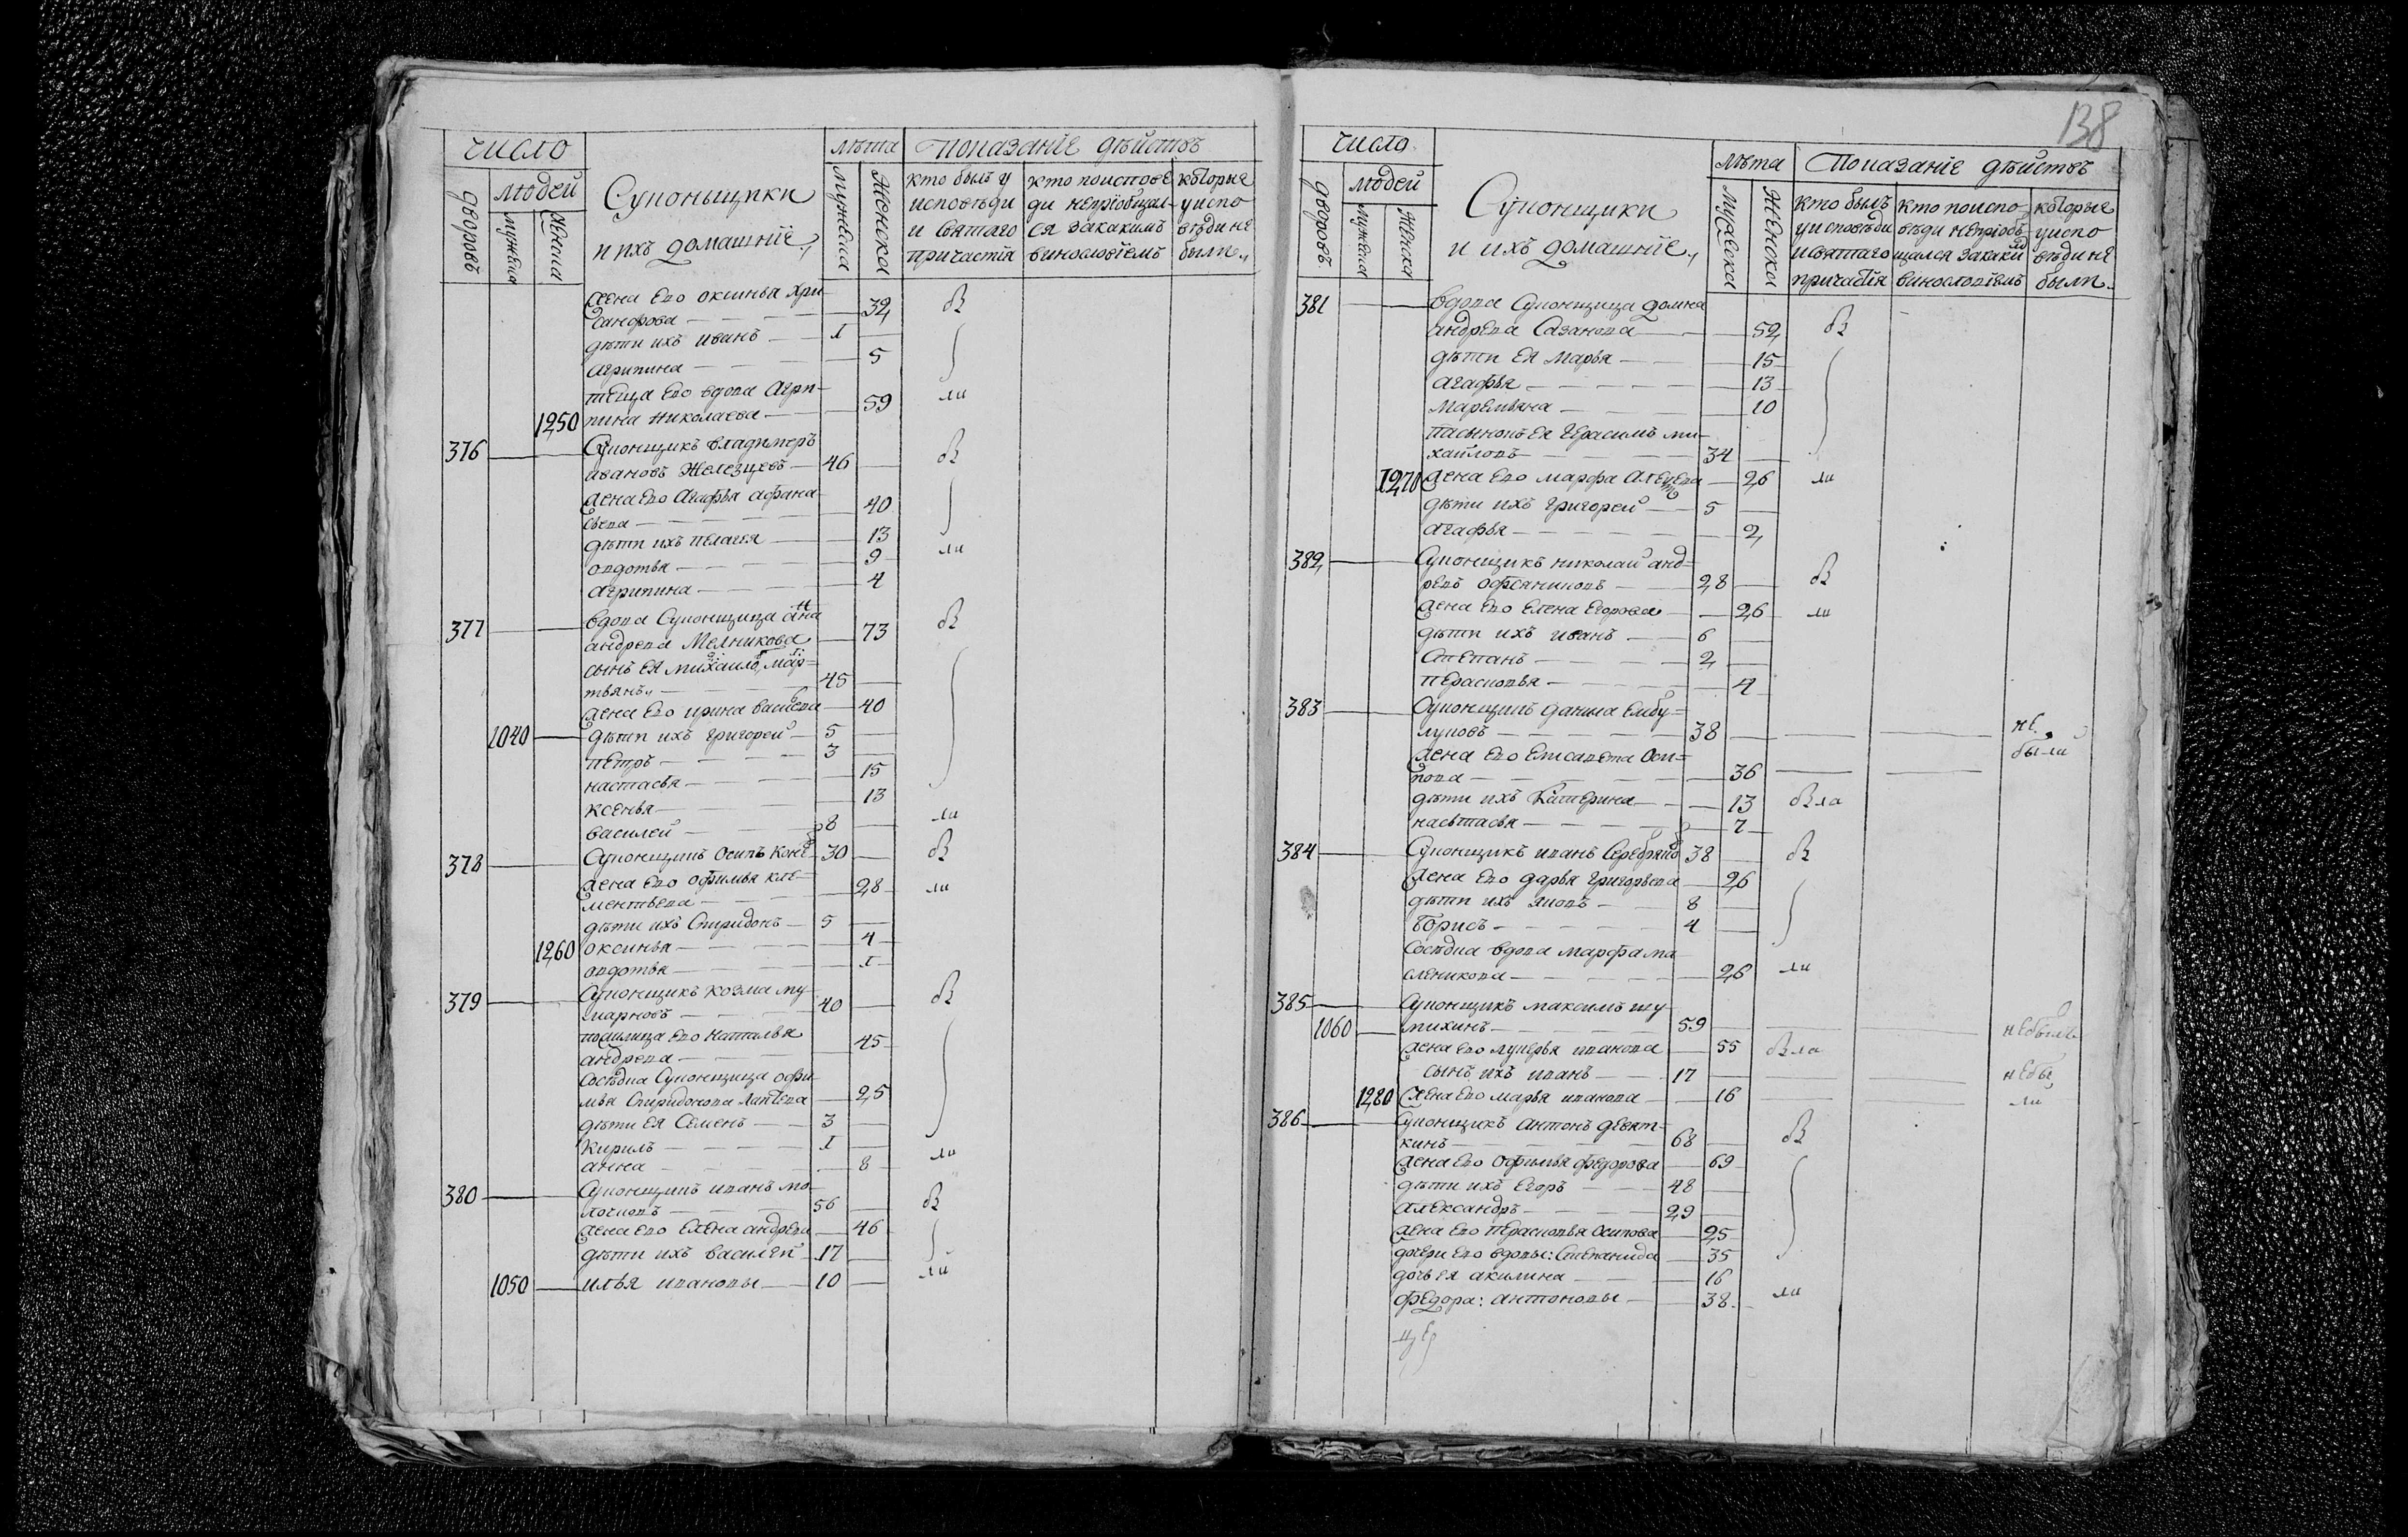 138
число
лѣта показание дѣйствъ
дворовъ
людей
мужеска
женска
Суконьщики
и ихъ домашние
мужеска
женска
кто былъ у
исповѣди
и святаго
причастiя
кто поиспове
ди неприобщал
ся закакимъ
винословiемъ
которые
уиспо
вѣди не
были
жена Ево оксинья хри
санфова 32 б
дѣти ихъ иванъ 1
агрипина 5
теща Ево вдова Агри-
1250 пина николаева 59 ли
376 Суконщикъ владимеръ
ивановъ Железцовъ 46 б
жена Ево Агафья афана
сьева 40
дѣти ихъ пелагея 13
овдотья 9 ли
агрипина 4
377 вдова Суконщица анна
андрева Мелникова 73 б
сынъ ея михаило мар=
тьянъ 45
жена Ево ирина васева 40
1040 дѣти ихъ григорей 5
петръ 3
настасья 15
ксенья 13
василей 8 ли
378 Суконщикъ Осипъ 30 б
жена Ево офимья кле-
ментьева 28 ли
дѣти ихъ Спиридонъ 5
1260 оксинья 4
овдотья 1
379 Суконщикъ козма му
40 б
Ево наталья
андрева 45
Соседка Суконщица офи
мья Спиридонова 25
дѣти ея Семенъ 3
Кирилъ 1
анна 8 ли
380 Суконщикъ иванъ мо
лочковъ 56 б
жена Ево Елена андрева 46
дѣти ихъ василей 17
1050 илья ивановы 10 ли
число
лѣта Показание дѣйствъ
дворовъ
людей
мужеска
женска
Суконщики
и ихъ домашние
мужеска
женска
кто былъ
уисповѣди
исвятаго
причастiя
кто поиспо
вѣди неприоб
щался закаким
винословiемъ
которые
уиспо
вѣди не
были
381 вдова Суконщица домна
андрева Сазанова 52 б
дѣти ея марья 15
агафья 13
маремьяна 10
пасынокъ ея герасимъ ми-
хайловъ 34
1270 жена Ево марфа 26 ли
дѣти ихъ григорей 5
агафья 2
382 Суконщикъ николай анд=
ревъ офсяниковъ 28 б
жена Ево Елена Егорова 26 ли
дѣти ихъ иванъ 6
Степанъ 2
Парасковья 4
383 Суконщикъ данила Елбу=
луковъ 38 не
жена Ево Елисавета Оси=
пова 36 были
дѣти ихъ Катерина 13 была
настасья 7
384 Суконщикъ иванъ 38 б
жена Ево дарья григорьева 26
дѣти ихъ яковъ 8
Борисъ 4
Соседка вдова марфа ма
сленикова 26 ли
385 Суконщикъ максимъ шу
1060 михинъ 59 небылъ
жена Ево лукерья иванова 55 была
сынъ ихъ иванъ 17 небы
1280 Жена Ево марья иванова 16 ли
386 Суконщикъ антонъ девят-
кинъ 68 б
жена Ево офимья федорова 69
дѣти ихъ Егоръ 48
Александръ 29
жена Ево Парасковья Осипова 25
дочери Ево вдовы: Степанида 35
дочь ея акилина 16
федора: антоновы 38 ли